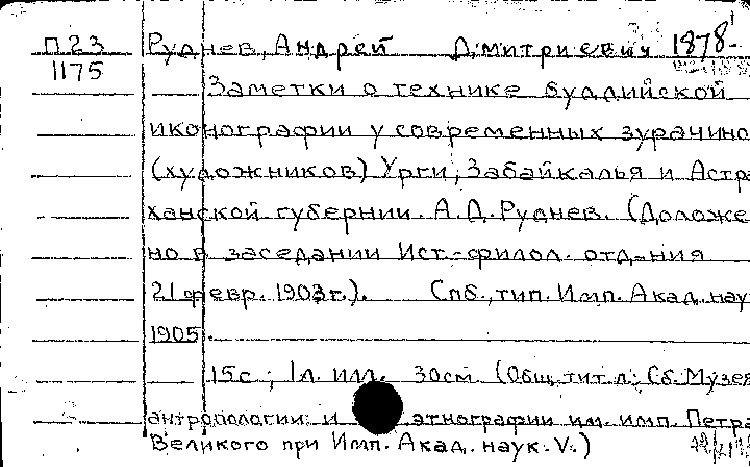 П23 Руднев, Андрей Дмитриевич 1878-
1175
Заметки о технике буддийской
иконографии у современных зурачино
(художников) Урги, Забайкалья и Астра
ханской губернии. А.Д. Руднев. (Доложе
но в заседании Ист.-филол. отд-ния
21 февр. 1903 г.). Спб., тип. Имп. Акад. наук
1905.
15 с.; 1 л. илл. 30 см. (Общ. тит. л.: Сб. Музея
антропологии и этнографии им. имп. Петра
Великого при Имп. Акад. наук. V.)